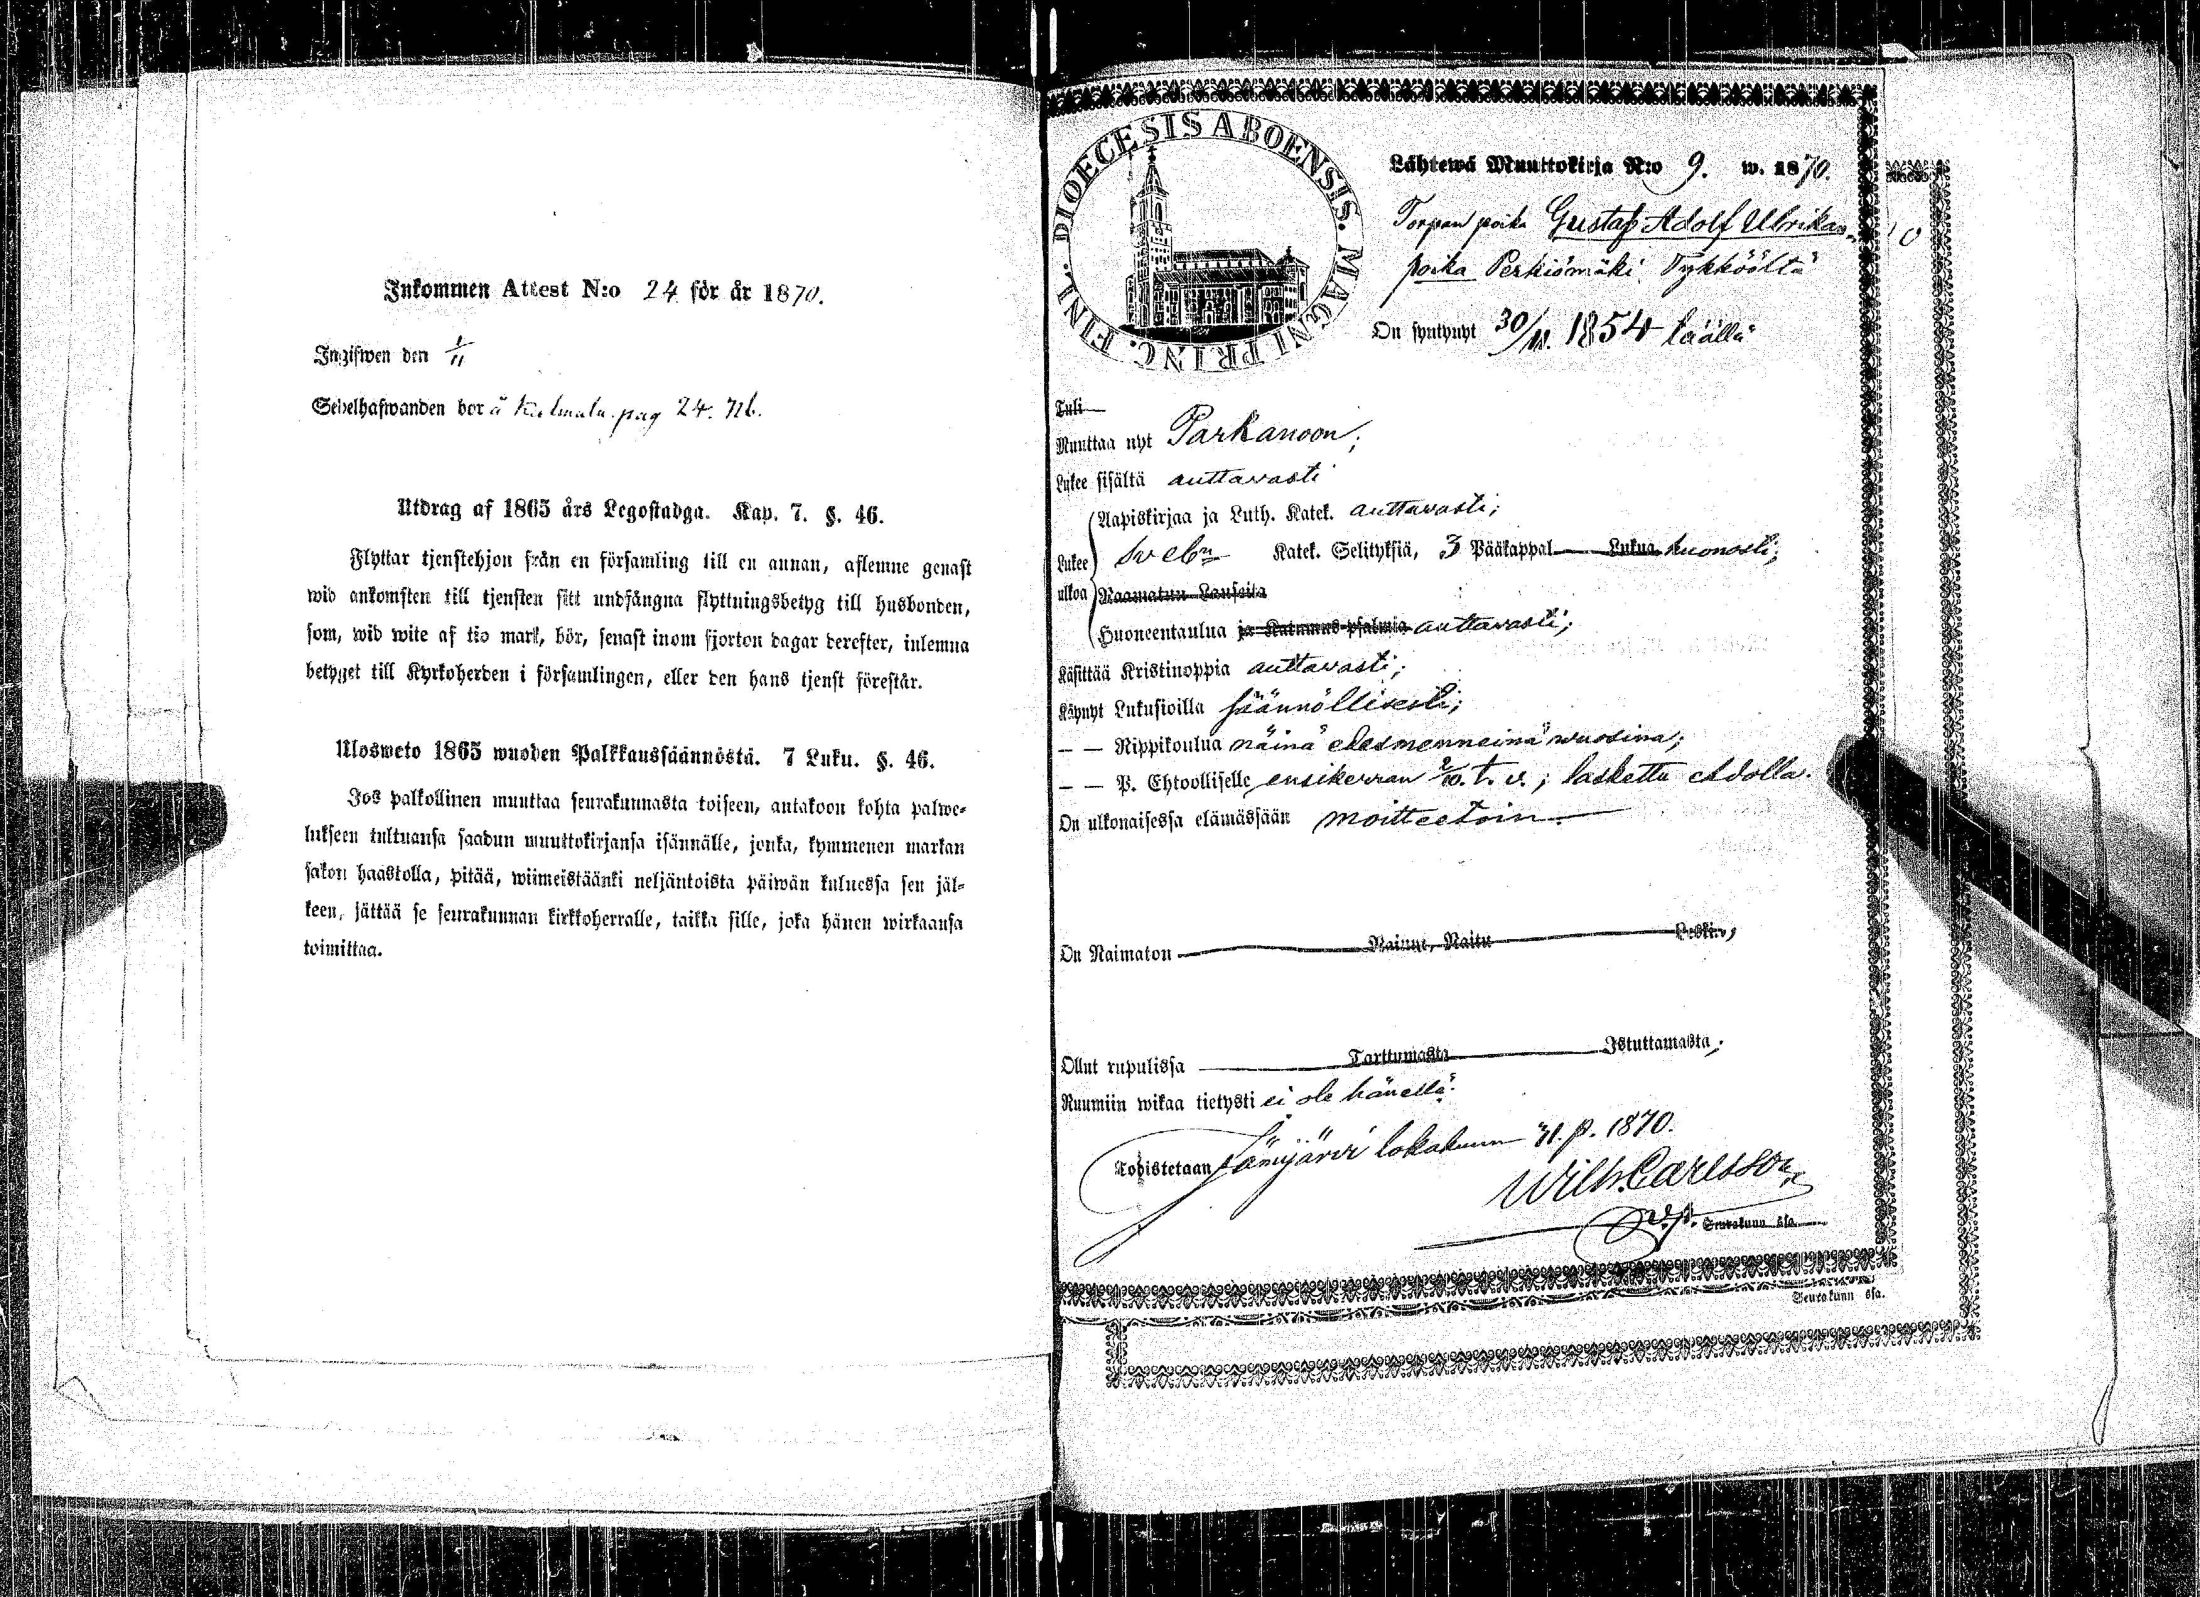 Inkommen Attest N:o 24 för år 1870.
Ingifwen den 1/11
Sedelhafwanden bor å pag 24.
Utdrag af 1865 års Legostadga. Kap. 7. §. 46.
Flyttar tjenstehjon från en församling till en annan, aflemne genast
wid ankomsten till tjensten sitt undfångna flyttningsbetyg till husbonden,
som, wid wite af tio mark, bör, senast inom fjorton dagar derefter, inlemna
betyget till Kyrkoherden i församlingen, eller den hans tjenst förestår.
Ulosweto 1865 wuoden Palkkaussäännöstä. 7 Luku. §. 46.
Jos palkollinen muuttaa seurakunnasta toiseen, antakoon kohta palwe-
lukseen tultuansa saadun muuttokirjansa isännälle, jonka, kymmenen markan
sakon haastolla, pitää, wiimeistäänki neljäntoista päiwän kuluessa sen jäl-
keen, jättää se seurakunnan kirkkoherralle, taikka sille, joka hänen wirkaansa
toimittaa.
DIOECESIS ABOENSIS. MAGNI PRINC. FINL.
Lähtewä Muuttokirja N:o 9. w. 1870.
Torpan poika Gustaf Adolf Ulrikan-
poika Perkiömäki Tykköältä
On syntynyt 30/11. 1854 täällä
Tuli
Muuttaa nyt Parkanoon;
Lukee sisältä auttavasti
Aapiskirjaa ja Luth. Katek. auttavasti;
Lukee Katek. Selityksiä, 3 Pääkappal Lukua huonosti;
ulkoa Raamatun Lauseita
Huoneentaulua ja Katumus-psalmia auttavasti;
Käsittää Kristinoppia auttavasti;
Käynyt Lukusioilla säännöllisesti;
— — Rippikoulua näinä edesmenneinä wuosina;
— — P. Ehtoolliselle ensikerran 2/10. t. v.; laskettu Adolla.
On ulkonaisessa elämässään moitteetoin.
On Naimaton Nainut, Naitu Leski;
Ollut rupulissa Tarttumasta Istuttamasta;
Ruumiin wikaa tietysti ei ole hänellä.
Todistetaan Jämijärvi lokakuun 31. p. 1870.
Wilh. Carlsson
v. p. Seurakunn ssa.
Seurakunn ssa.